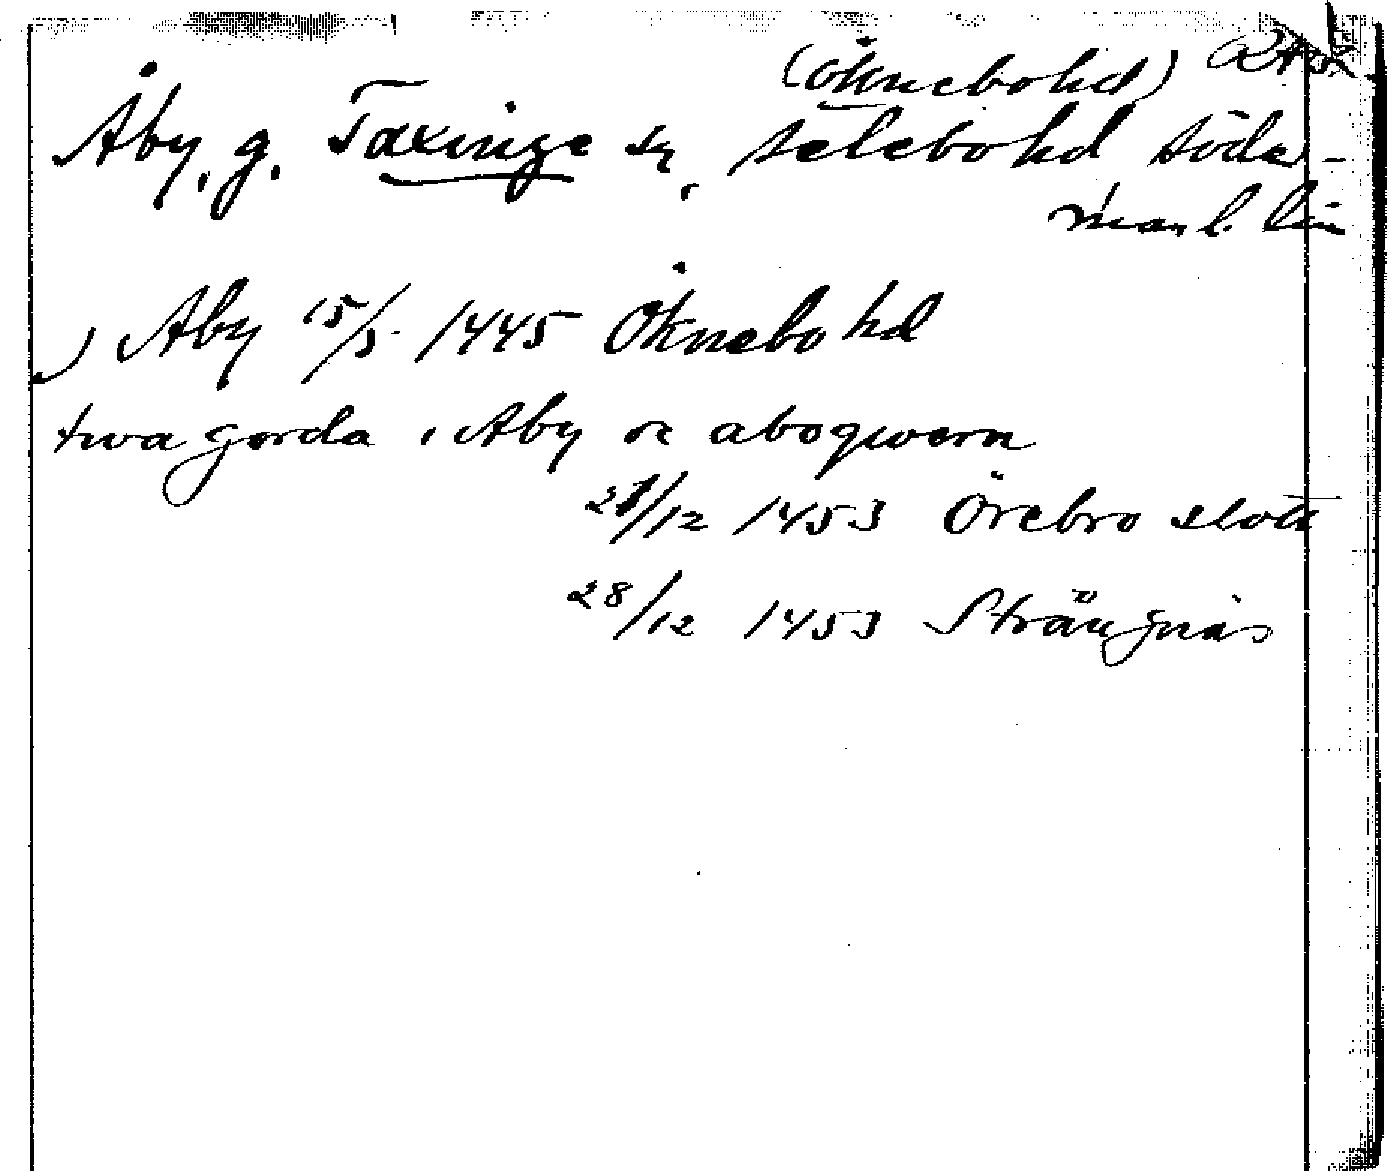 (Öknebo hd)
Åby, g. Taxinge sn, Selebo hd Söder-
manl. län
i Aby 15/5 1445 Öknebo hd
twa gorda i Aby oc aboqwern
28/12 1453 Örebro slott
28/12 1453 Strängnäs